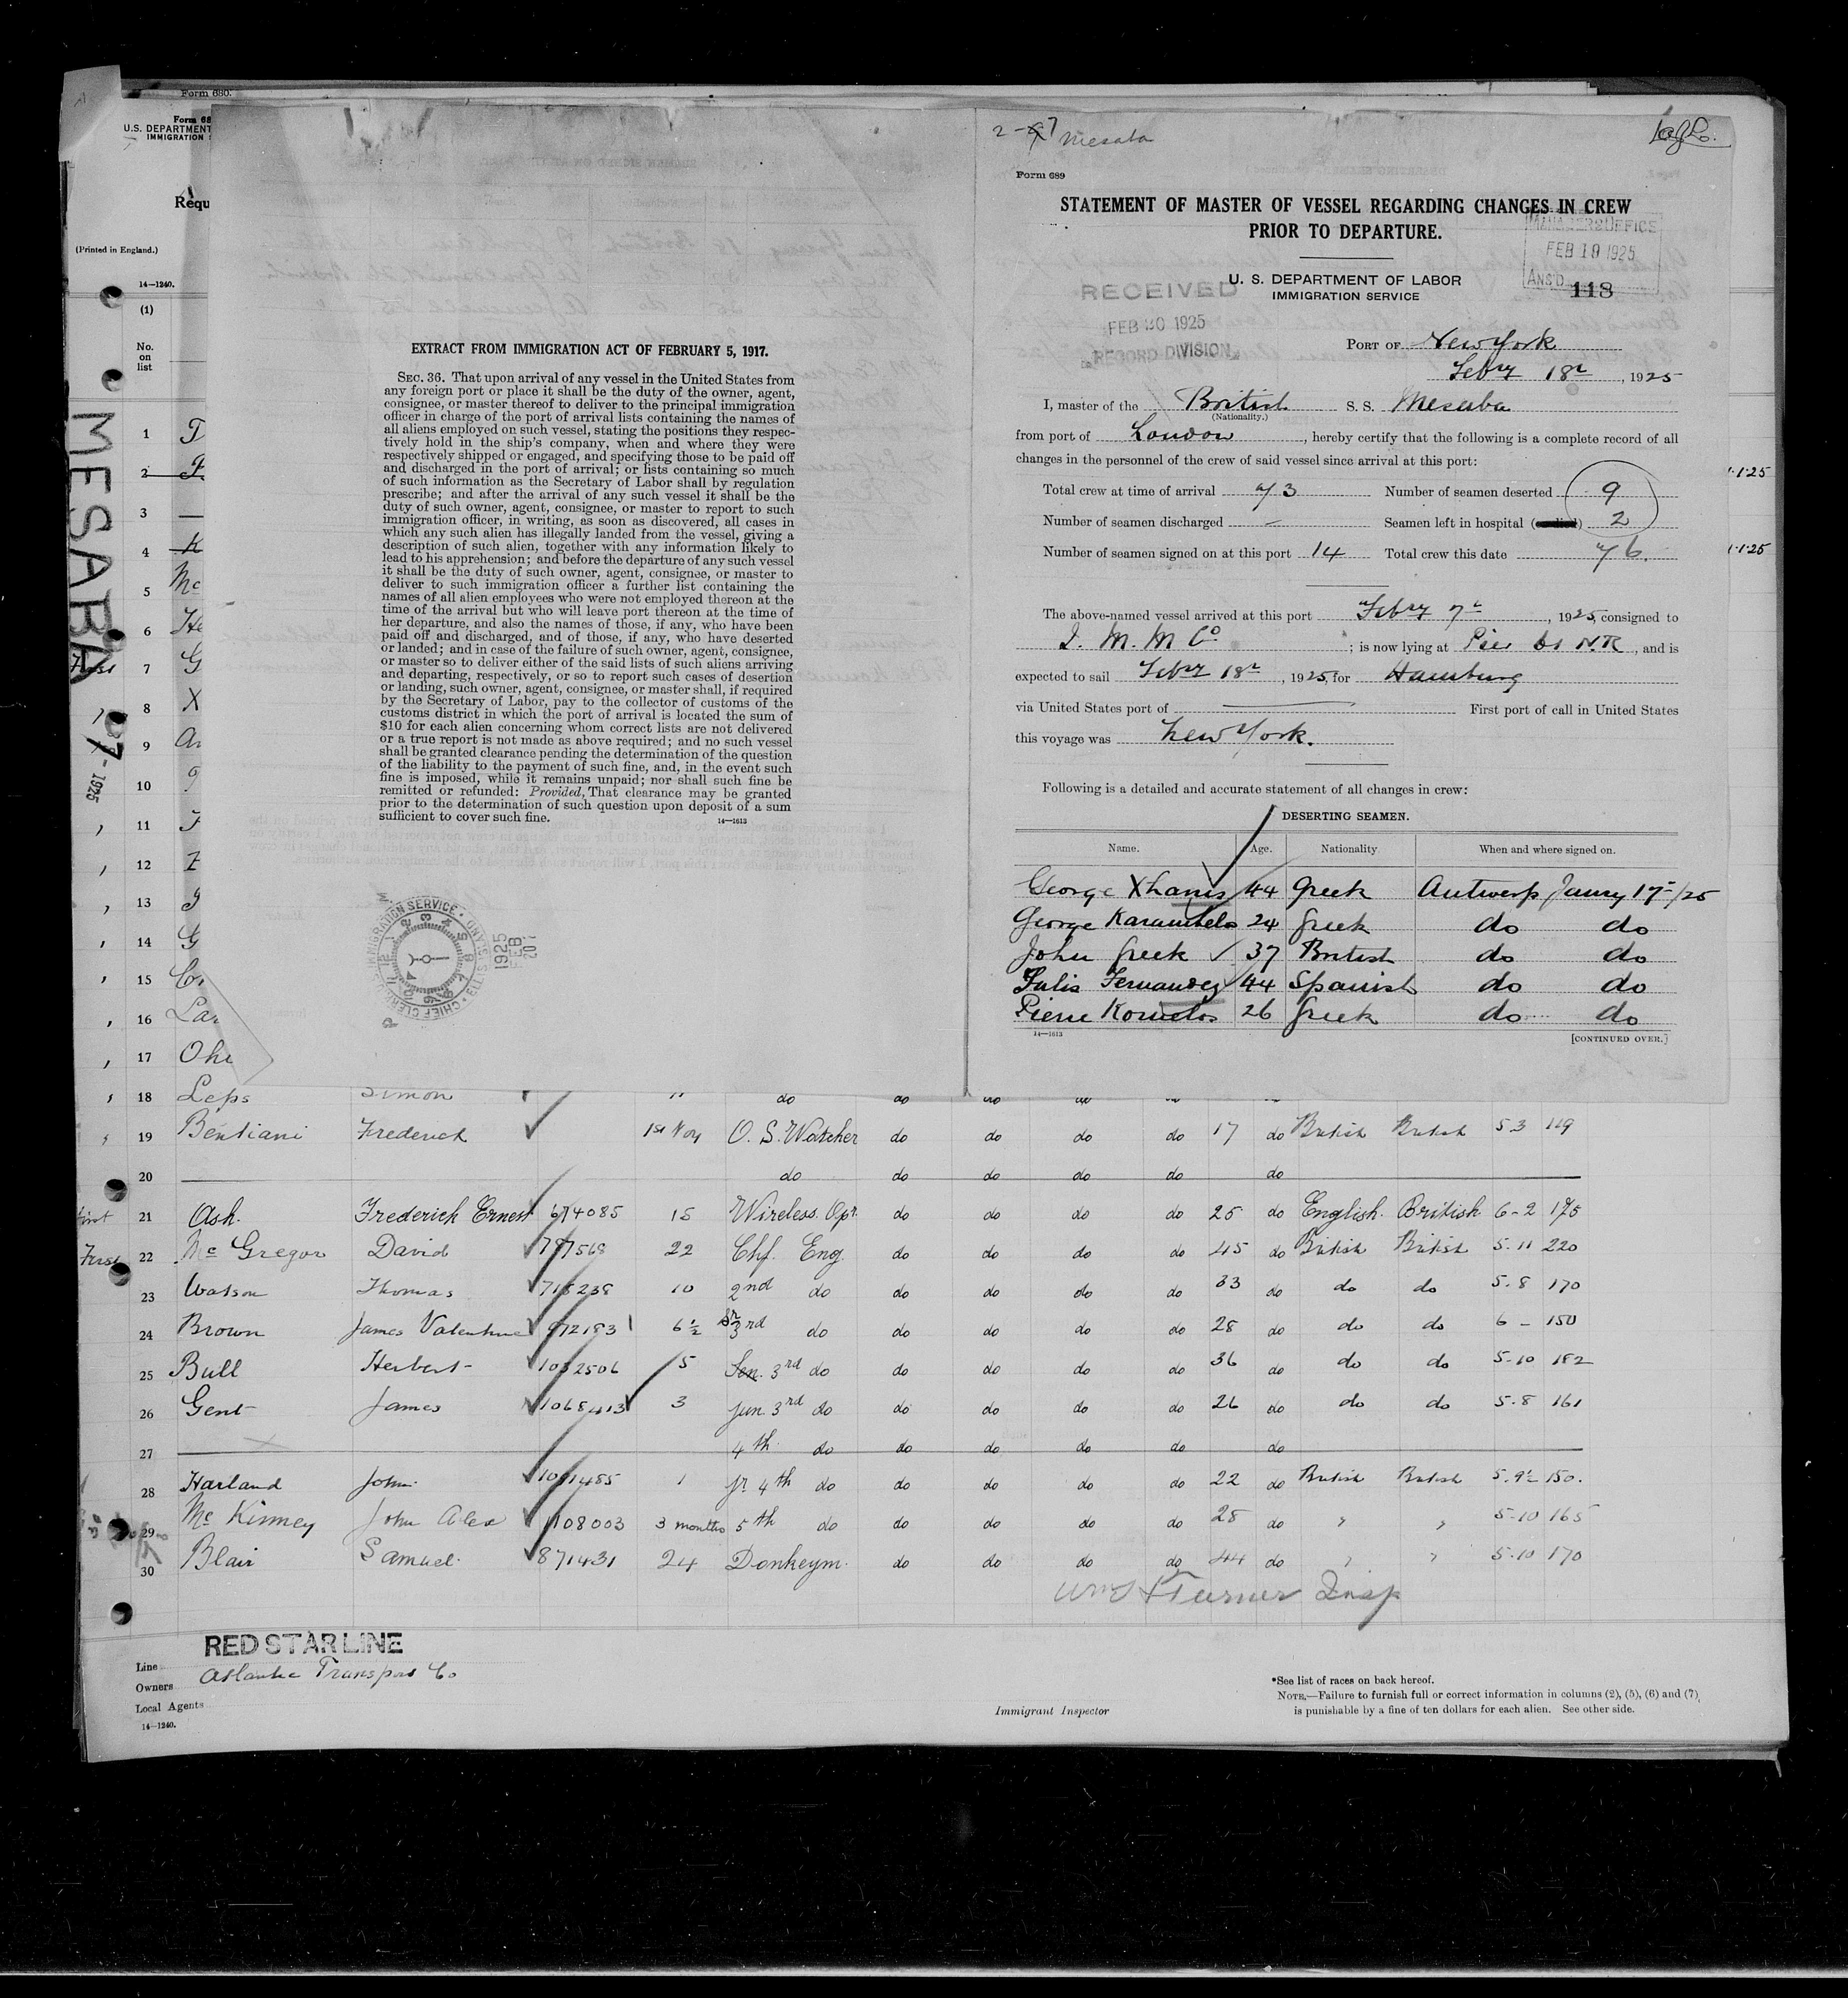 Form 680.
Form 68
U.S. DEPARTMENT
IMMIGRATION
Requ
(Printed in England.)
14—1240.
(1)
No.
on
list
MESABA
1925
EXTRACT FROM IMMIGRATION ACT OF FEBRUARY 5, 1917.
SEC. 36. That upon arrival of any vessel in the United States from
any foreign port or place it shall be the duty of the owner, agent,
consignee, or master thereof to deliver to the principal immigration
officer in charge of the port of arrival lists containing the names of
all aliens employed on such vessel, stating the positions they respec-
tively hold in the ship's company, when and where they were
respectively shipped or engaged, and specifying those to be paid off
and discharged in the port of arrival; or lists containing so much
of such information as the Secretary of Labor shall by regulation
prescribe; and after the arrival of any such vessel it shall be the
duty of such owner, agent, consignee, or master to report to such
immigration officer, in writing, as soon as discovered, all cases in
which any such alien has illegally landed from the vessel, giving a
description of such alien, together with any information likely to
lead to his apprehension; and before the departure of any such vessel
it shall be the duty of such owner, agent, consignee, or master to
deliver to such immigration officer a further list containing the
names of all alien employees who were not employed thereon at the
time of the arrival but who will leave port thereon at the time of
her departure, and also the names of those, if any, who have been
paid off and discharged, and of those, if any, who have deserted
or landed; and in case of the failure of such owner, agent, consignee,
or master so to deliver either of the said lists of such aliens arriving
and departing, respectively, or so to report such cases of desertion
or landing, such owner, agent, consignee, or master shall, if required
by the Secretary of Labor, pay to the collector of customs of the
customs district in which the port of arrival is located the sum of
$10 for each alien concerning whom correct lists are not delivered
or a true report is not made as above required; and no such vessel
shall be granted clearance pending the determination of the question
of the liability to the payment of such fine, and, in the event such
fine is imposed, while it remains unpaid; nor shall such fine be
remitted or refunded: Provided, That clearance may be granted
prior to the determination of such question upon deposit of a sum
sufficient to cover such fine.
14—1613
Mesaba
Form 689
STATEMENT OF MASTER OF VESSEL REGARDING CHANGES IN CREW
PRIOR TO DEPARTURE.
MANAGERS OFFICE
FEB 19 1925
ANS'D
118
U. S. DEPARTMENT OF LABOR
IMMIGRATION SERVICE
RECEIVED
FEB 20 1925
RECORD DIVISION
PORT OF New York
Feby 18th, 1925
I, master of the British S. S. Mesaba
(Nationality.)
from port of London, hereby certify that the following is a complete record of all
changes in the personnel of the crew of said vessel since arrival at this port:
Total crew at time of arrival 73 Number of seamen deserted 9
Number of seamen discharged — Seamen left in hospital 2
Number of seamen signed on at this port 14 Total crew this date 76.
The above-named vessel arrived at this port Feby 7th, 1925, consigned to
I. M. M Co; is now lying at Pier 61 N.R, and is
expected to sail Feby 18th, 1925, for Hamburg
via United States port of — First port of call in United States
this voyage was New York.
Following is a detailed and accurate statement of all changes in crew:
DESERTING SEAMEN.
Name. Age. Nationality. When and where signed on.
George Xhanis 44 Greek Antwerp Jany 17th/25
George 24 Greek do do
John Greek 37 British do do
Julis Fernandez 44 Spanish do do
Pierre 26 Greek do do
14—1613
[CONTINUED OVER.]
1
2
3
4
5 Mc
6 He
7 G
8 X
9
10
11
12
13
14 G
15
16 Lar
17
18 Leps Simon do do do do do
19 Bentiani Frederick 1st Voy O. S. Watcher do do do do 17 do British British 5 3 119
20 do do do do do do
21 Ash. Frederick Ernest 674085 15 Wireless. Opr. do do do do 25 do English. British 6-2 175
First 22 McGregor David 787568 22 Chf. Eng. do do do do 45 do British British 5.11 220
23 Watson Thomas 715238 10 2nd do do do do do 33 do do do 5.8 170
24 Brown James Valentine 972193 6½ Sr 3rd do do do do do 28 do do do 6 – 150
25 Bull Herbert 1032506 5 Sen. 3rd do do do do do 36 do do do 5-10 182
26 Gent James 1068413 3 Jun. 3rd do do do do do 26 do do do 5-8 161
27 4th do do do do do do
28 Harland John 1091485 1 Jr. 4th do do do do do 22 do British British 5.9½ 150.
29 McKinney John Alex 1108003 3 months 5th do do do do do 28 do " " 5-10 165
30 Blair Samuel 871431 24 Donkeym. do do do do 44 do " " 5-10 170
Turner Insp
RED STAR LINE
Line
Owners Atlantic Transport Co
Local Agents
14—1240.
Immigrant Inspector
*See list of races on back hereof.
NOTE.—Failure to furnish full or correct information in columns (2), (5), (6) and (7)
is punishable by a fine of ten dollars for each alien. See other side.